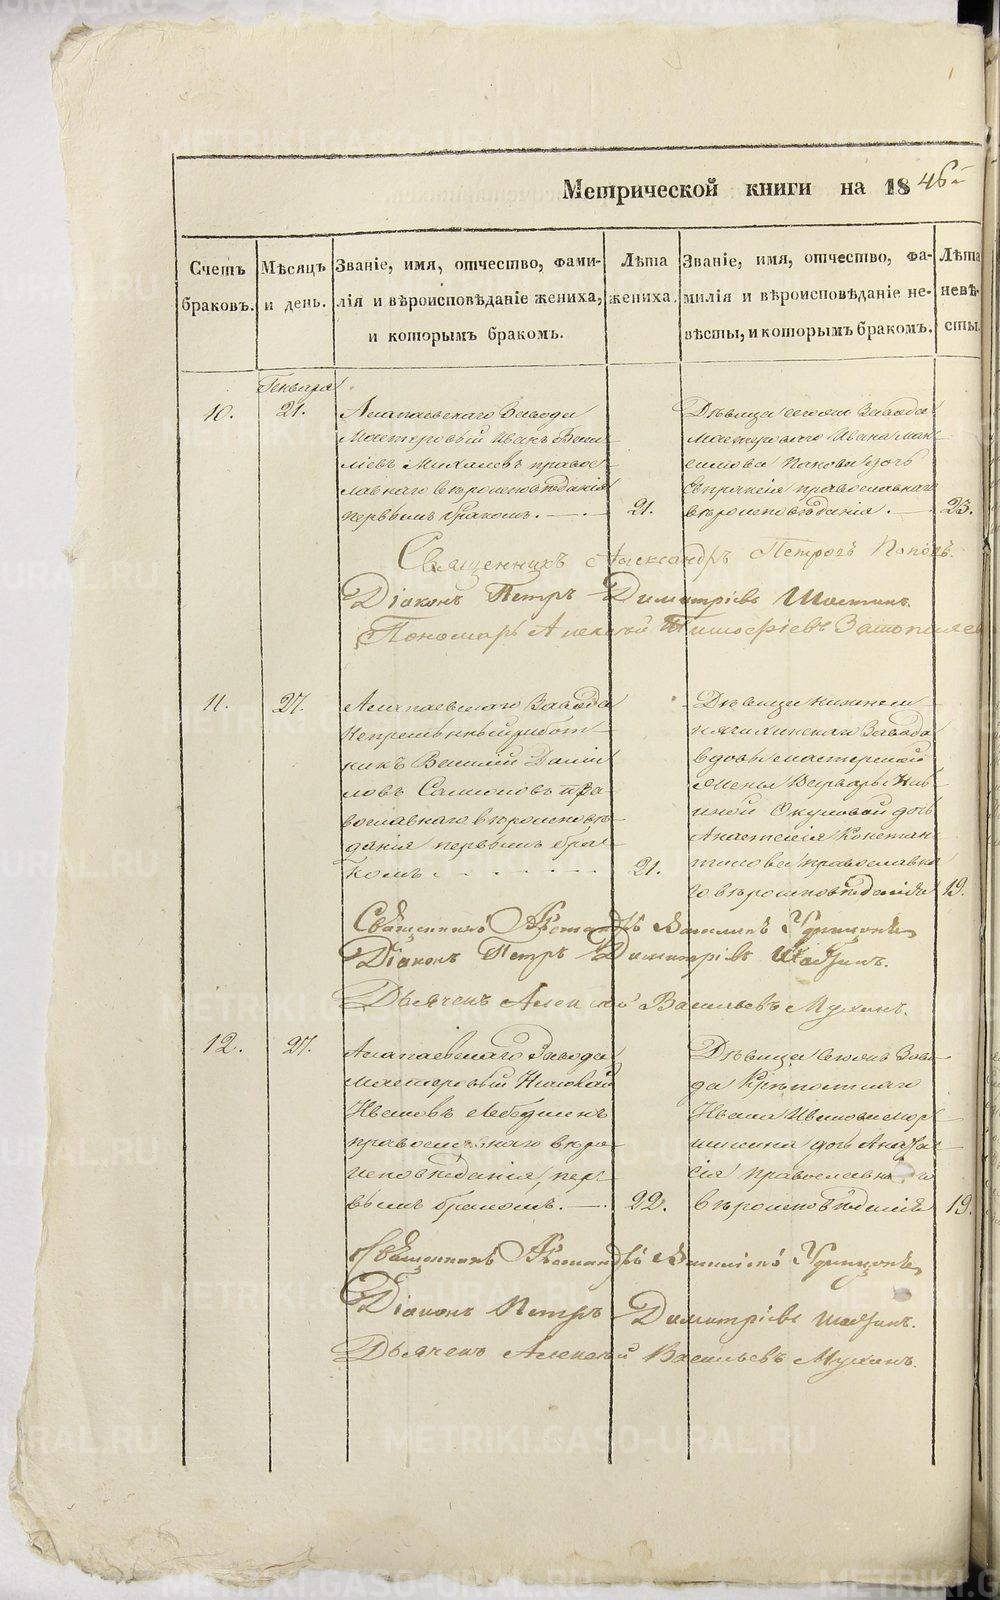 Метрической книги на 1846й
Счетъ браковъ.
Мѣсяцъ и день.
Званіе, имя, отчество, фами-
лія и вѣроисповѣданіе жениха,
и которымъ бракомъ.
Лѣта жениха.
Званіе, имя, отчество, фа-
милія и вѣроисповѣданіе не-
вѣсты, и которымъ бракомъ.
Лѣта невѣ-
сты.
Генваря
10.
21.
Алапаевскаго Завода
Мастеровый Иванъ Васи-
ліевъ Михалевъ право-
славнаго вѣроисповѣданія
первымъ бракомъ.
21.
Дѣвица сегожъ Завода
мастероваго Ивана Мак-
симова Панова дочь
православнаго
вѣроисповѣданія.
23.
Священникъ Александръ Петровъ Поповъ.
Діаконъ Петръ Димитріевъ Шастинъ.
Пономарь Алексѣй Тимофѣевъ
11.
27.
Алапаевскаго Завода
Непремѣнный работ-
никъ Василій Даніи-
ловъ пра-
вославнаго вѣроисповѣ-
данія первымъ бра-
комъ.
21.
Дѣвица
Завода
вдовы мастерской
жены Варвары Ива-
ной Окуловой дочь
Анастасія Констан-
тинова православна-
го вѣроисповѣданія
19.
Священникъ Александръ Василіевъ Удинцовъ
Діаконъ Петръ Димитріевъ Шастинъ.
Дьячекъ Алексѣй Васильевъ Мухинъ.
12.
27.
Алапаевскаго Завода
мастеровый Николай
Ивановъ Лебедкинъ
православнаго вѣро-
исповѣданія, пер-
вымъ бракомъ.
22.
Дѣвица сегожъ Заво-
да
Ивана Иванова Мор-
шинина дочь Анаста-
сія православнаго
вѣроисповѣданія
19.
Священникъ Александръ Василіевъ Удинцовъ
Діаконъ Петръ Димитріевъ Шастинъ.
Дьячекъ Алексѣй Васильевъ Мухинъ.
METRIKI.GASO-URAL.RU